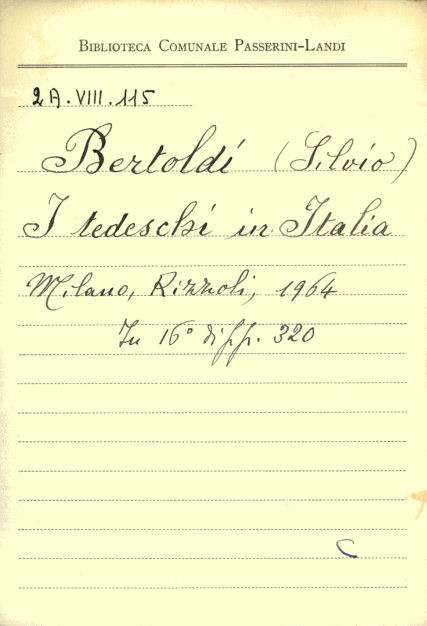 BIBLIOTECA COMUNALE PASSERINI-LANDI
2A.VIII.115
Bertoldi (Silvio)
I tedeschi in Italia
Milano, Rizzoli, 1964
In 16° di pp. 320
C